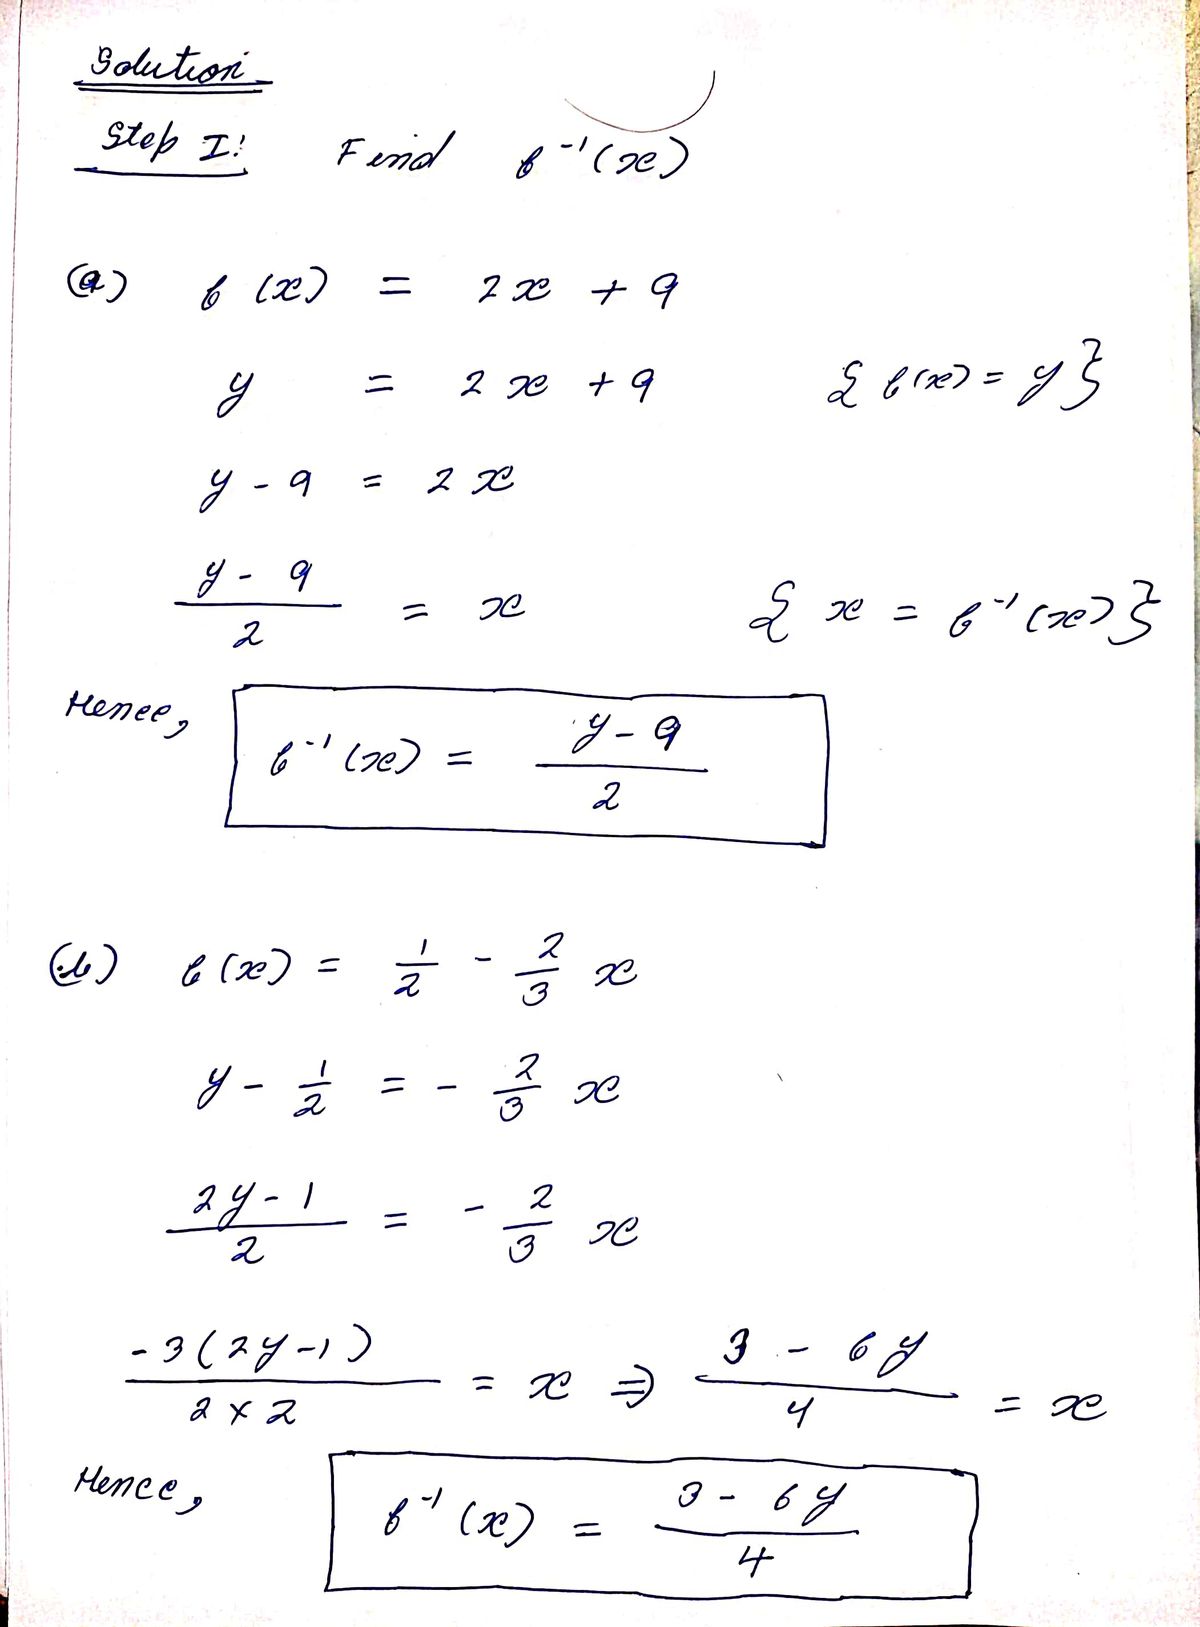 Solution
Step I: Find f⁻¹(x)
(a) f(x) = 2x + 9
y = 2x + 9 { f(x) = y }
y - 9 = 2x
(y - 9)/2 = x { x = f⁻¹(x) }
Hence, f⁻¹(x) = (y - 9)/2
(b) f(x) = 1/2 - 2/3 x
y - 1/2 = - 2/3 x
(2y - 1)/2 = - 2/3 x
-3(2y-1)/(2 × 2) = x ⇒ (3 - 6y)/4 = x
Hence, f⁻¹(x) = (3 - 6y)/4